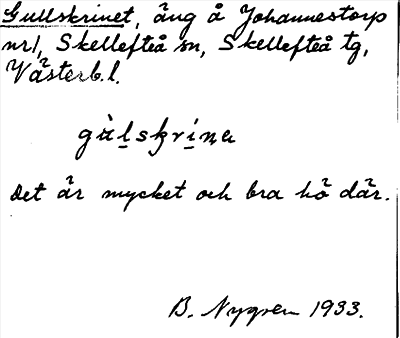 Gullskrinet, äng å Johannestorp
nr 1, Skellefteå sn, Skellefteå tg,
Västerb. l.
gùl̲skri̲na
Det är mycket och bra hö där.
B. Nygren 1933.